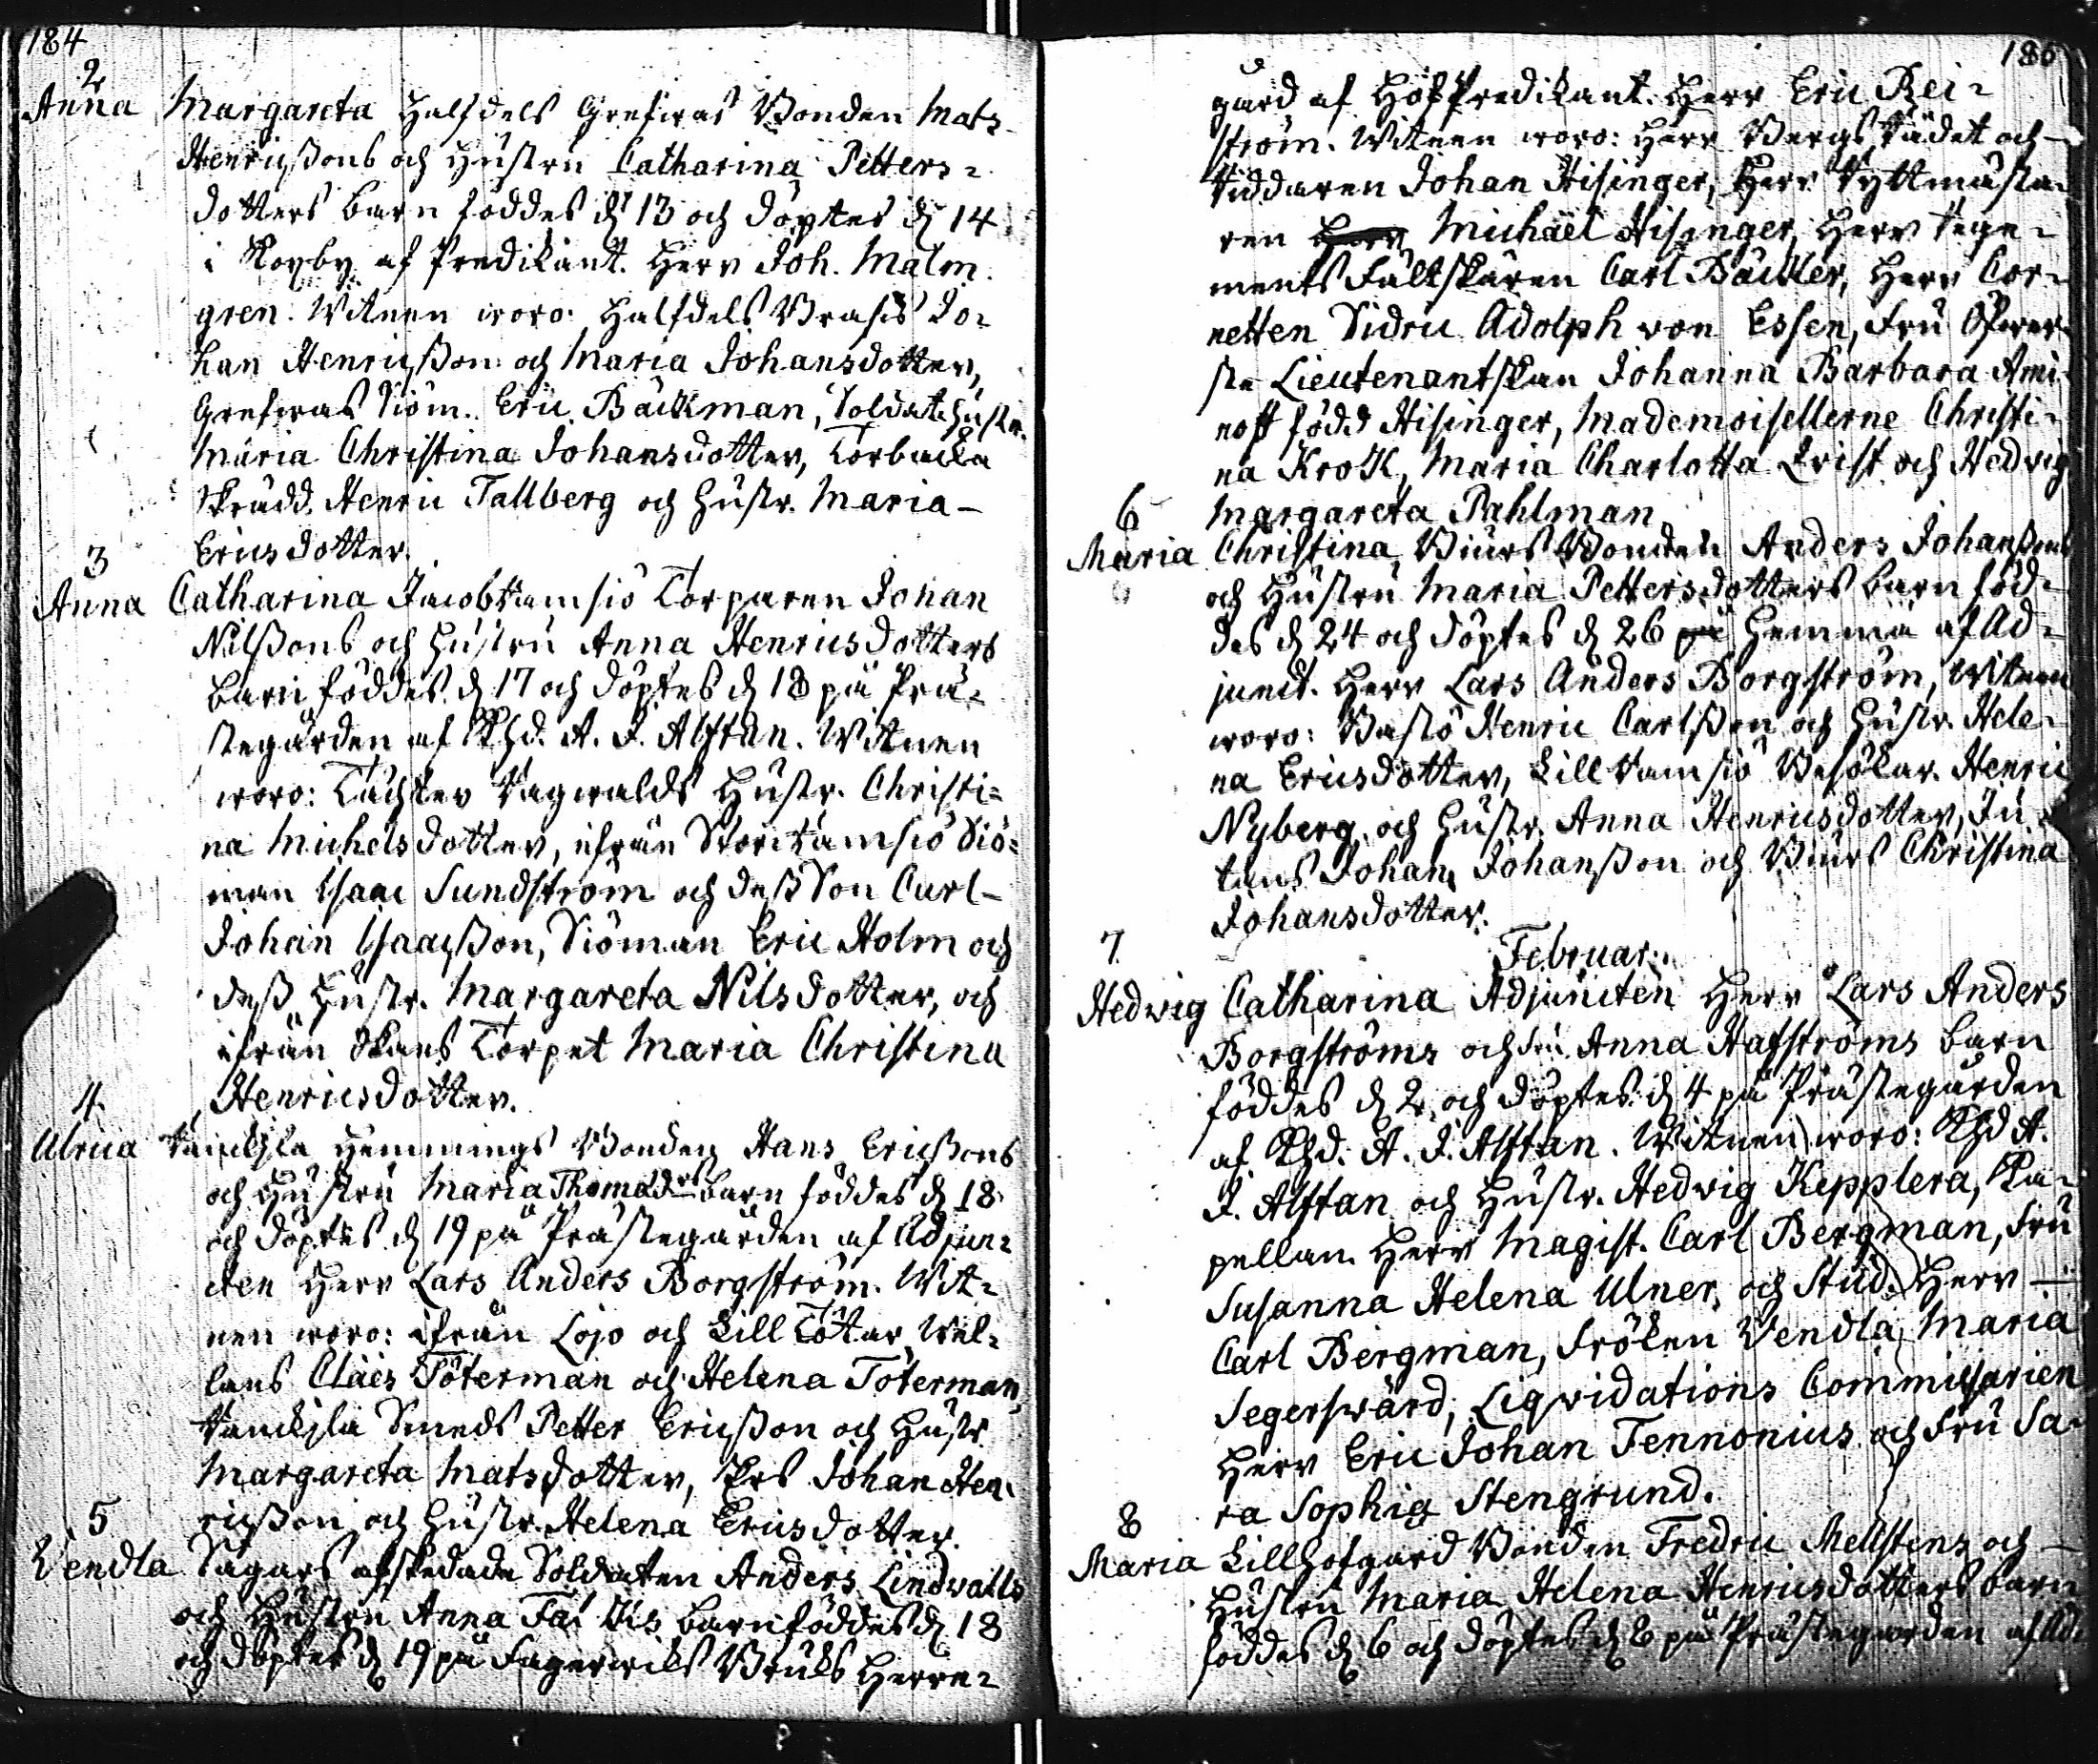 184
2
Anna Margareta Halfdels Grefwas Bonden Mats
Henricßons och Hustru Catharina Petters=
dotters barn föddes d 13 och döptes d 14
i Röxby af Predikant. Herr Joh. Malm
gren. Witnen woro: Halfdels Jo=
han Henricßon och Maria Johansdotter,
Grefwas Siöm. Eric Bäckman, Soldatehustr.
Maria Christina Johansdotter, Torbacka
Skrädd. Henric Tallberg och Hustr. Maria –
Ericsdotter.
3
Anna Catharina Jacobramsiö Torparen Johan
Nilßons och Hustru Anna Henricsdotters
barn föddes d 17 och döptes d 18 på Prä=
stegården af Khd. A. J. Alftan. Witnen
woro: Täckter Ragwalds Hustr. Christi=
na Michelsdotter, ifrån Storramsiö Siö=
man Isaac Sundström och deß Son Carl –
Johan Isaacßon, Siöman Eric Holm och
deß Hustr. Margareta Nilsdotter, och
ifrån Skans Torpet Maria Christina
Henricsdotter.
4
Ulrica Hemmings Bonden Hans Ericßons
och Hustru Maria Thomadrs barn föddes d 18
och döptes d 19 på Prästegården af Adjun=
cten Herr Lars Anders Borgström. Wit=
nen woro: ifrån Lojo och Lill Tötar, Wel=
lans Claës Töterman och Helena Töterman,
Smeds Petter Ericßon och Hustr.
Margareta Matsdotter, Johan Hen=
ricßon och Hustr. Helena Ericsdotter.
5
Vendla Sågars afskedade Soldaten Anders Lindwalls
och Hustru Anna barn föddes d 18
och döptes d 19 på Fagerwiks Bruks Herre=
185
gård af Hof Predikant. Herr Eric Rei=
ström. Witnen woro: Herr Bergs Rådet och –
Riddaren Johan Hisinger, Herr Ryttmästa=
ren Michaël Hisinger, Herr Rege=
ments Fältskären Carl Bäcker, Herr Cor=
netten Didric Adolph von Essen, Fru Öfwer=
ste Lieutenantskan Johanna Barbara Ami=
noff född Hisinger, Mademoisellerne Christi=
na Krok, Maria Charlotta Qvist och Hedvig
Margareta Pahlman
6
Maria Christina, Biürs Bonden Anders Johanßons
och Hustru Maria Pettersdotters barn föd=
des d 24 och döptes d 26 på hemma af Ad=
junct. Herr Lars Anders Borgström, Witnen
woro: Basiö Henric Carlßon och Hustr. Hele=
na Ericsdotter, Lill Ramsiö Besökar. Henric
Nyberg och Hustr. Anna Henricsdotter, Ju=
tans Johan Johanßon och Biürs Christina
Johansdotter.
Februar.
7
Hedwig Catharina Adjuncten Herr Lars Anders
Borgströms och Fru Anna Hafströms barn
föddes d 2 och döptes d 4 på Prästegården
af Khd. A. J. Alftan. Witnen woro: Khd A.
J. Alftan och Hustr. Hedvig Kepplera, Ka=
pellan Herr Magist. Carl Bergman, Fru
Susanna Helena Ulner, och Stud. Herr –
Carl Bergman, Fröken Vendla Maria
Segerswärd, Liqvidations Commissarien
Herr Eric Johan Tennonius och Fru Sa=
ra Sophia Stengrund.
8
Maria Lillhofgård Bonden Fredric Mellstens och –
Hustru Maria Helena Henricsdotters barn
föddes d 6 och döptes d 8 på Prästegården af Ad=